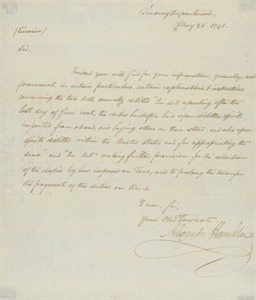 Treasury Department,
May 26 1791.
(Circular)
Sir,
Inclosed you will find for your information, generally, and
government, in certain particulars, certain explanations & instructions
concerning the two Acts, severally entitled "An Act repealing after the
last day of June next, the duties heretofore laid upon distilled spirits
imported from abroad, and laying others in their stead, and also upon
spirits distilled within the United States and for appropriating the
same" and "An Act making further provision for the collection
of the duties by law imposed on Teas, and to prolong the term for
the payment of the duties on Wines.
I am, Sir,
Your Obed Servant
Alexander Hamilton